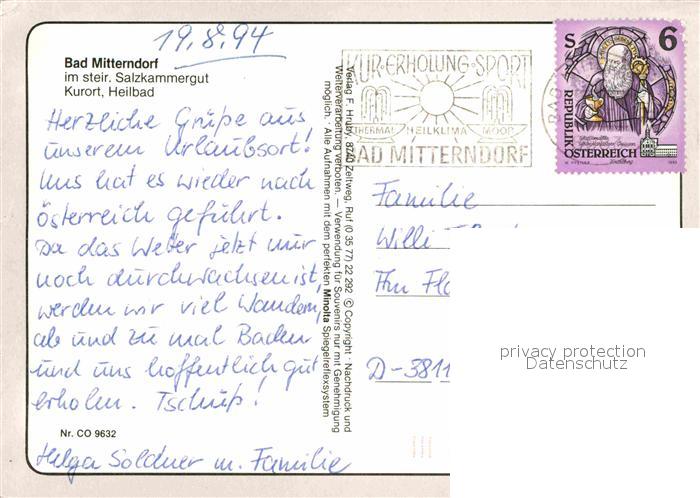 19.8.94
Bad Mitterndorf
im steir. Salzkammergut
Kurort, Heilbad
Herzliche Grüße aus
unserem Urlaubsort!
Uns hat es wieder nach
Österreich geführt.
Da das Wetter jetzt nur
noch durchwachsen ist,
werden wir viel Wandern,
ab und zu mal Baden
und uns hoffentlich gut
erholen. Tschüß!
Nr. CO 9632
Helga Soldner m. Familie
Verlag F. Huber, 8740 Zeltweg, Ruf (0 35 77) 22 292 © Copyright · Nachdruck und
Weiterverarbeitung verboten. — Verwendung für Souvenirs nur mit Genehmigung
möglich. · Alle Aufnahmen mit dem perfekten Minolta Spiegelreflexsystem
KUR·ERHOLUNG·SPORT
THERMAL HEILKLIMA MOOR
BAD MITTERNDORF
S 6
REPUBLIK
ÖSTERREICH
Familie
Willi
Am
D-3811
privacy protection
Datenschutz